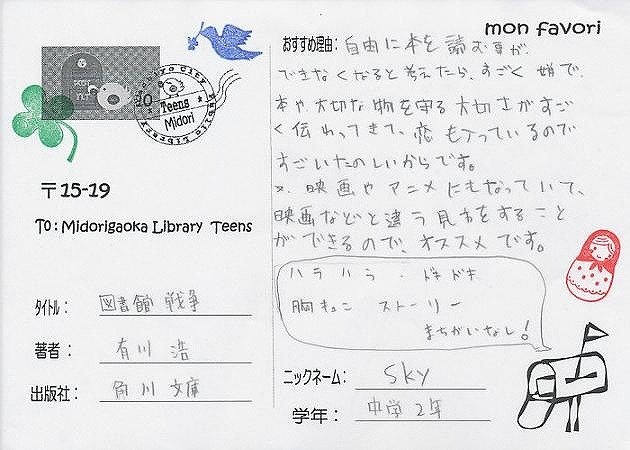 mon favori
おすすめ理由: 自由に本を読む事が
できなくなると考えたら、すごく嫌で、
本や大切な物を守る大切さがすご
く伝わってきて、恋も入っているので
すごいたのしいからです。
※ 映画やアニメにもなっていて、
映画などと違う見方をすること
ができるので、オススメです。
ハラハラ・ドキドキ
胸キュン ストーリー
まちがいなし!
Teens
Midori
〒15-19
To: Midorigaoka Library Teens
タイトル: 図書館戦争
著者: 有川 浩
出版社: 角川文庫
ニックネーム: sky
学年: 中学2年